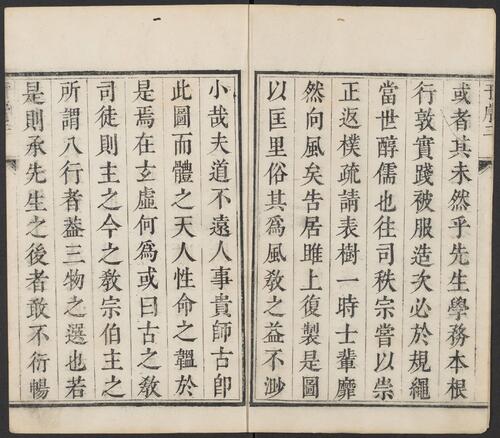 或者其未然乎先生學務本根
行敦實踐被服造次必於規繩
當世醇儒也往司秩宗嘗以崇
正返樸疏請表樹一時士輩靡
然向風矣吿居雎上復製是圖
以匡里俗其爲風敎之益不渺
小哉夫道不遠人事貴師古卽
此圖而體之天人性命之韞於
是焉在玄虛何爲或曰古之敎
司徒則主之今之敎宗伯主之
所謂八行者葢三物之選也若
是則承先生之後者敢不衍暢